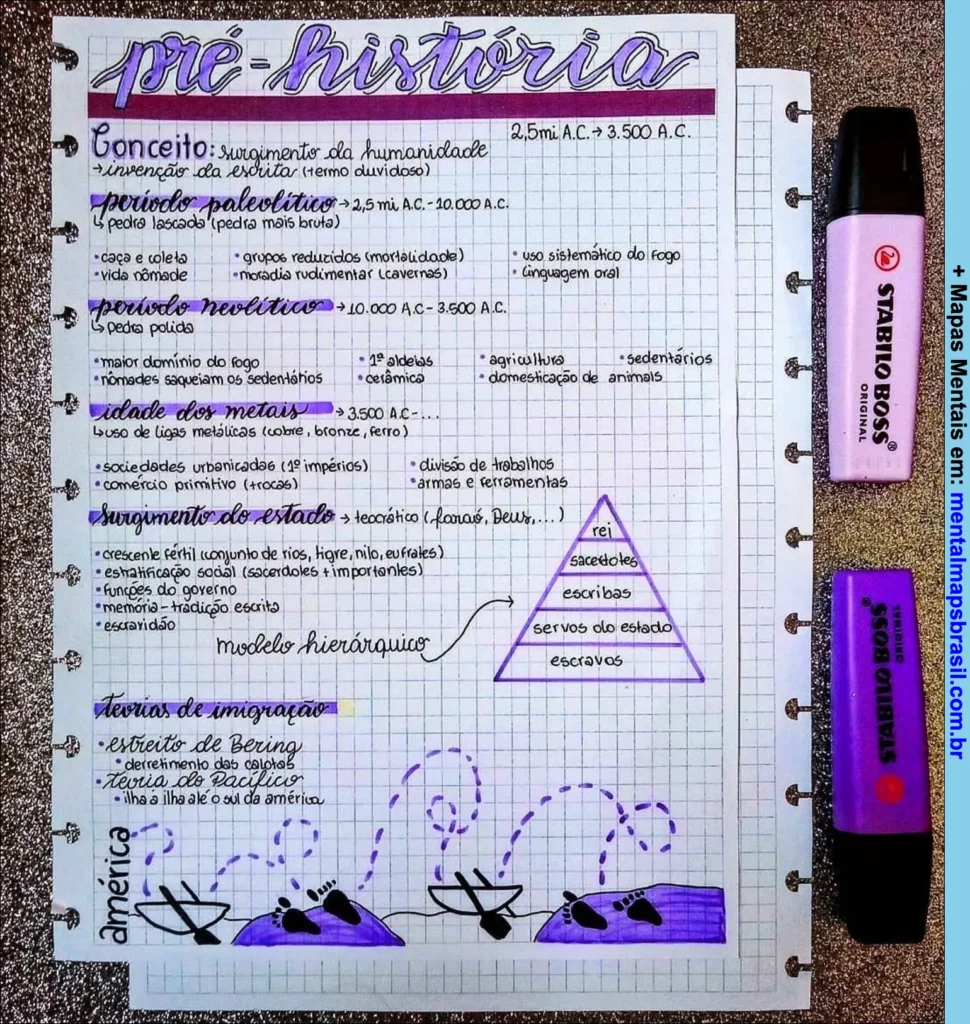 pré-história
2,5mi A.C. → 3.500 A.C.
Conceito: surgimento da humanidade
→ invenção da escrita (termo duvidoso)
período paleolítico → 2,5 mi A.C. - 10.000 A.C.
↳ pedra lascada (pedra mais bruta)
• caça e coleta • grupos reduzidos (mortalidade) • uso sistemático do fogo
• vida nômade • moradia rudimentar (cavernas) • linguagem oral
período neolítico → 10.000 A.C - 3.500 A.C.
↳ pedra polida
• maior domínio do fogo • 1ª aldeias • agricultura • sedentários
• nômades saqueiam os sedentários • cerâmica • domesticação de animais
idade dos metais → 3.500 A.C - ...
↳ uso de ligas metálicas (cobre, bronze, ferro)
• sociedades urbanizadas (1º impérios) • divisão de trabalhos
• comércio primitivo (trocas) • armas e ferramentas
surgimento do estado → teocrático (faraó, Deus, ...)
• crescente fértil (conjunto de rios, tigre, nilo, eufrates)
• estratificação social (sacerdotes + importantes)
• funções do governo
• memória - tradição escrita
• escravidão
modelo hierárquico
rei
sacerdotes
escribas
servos do estado
escravos
teorias de imigração
• estreito de Bering
• derretimento das calotas
• teoria do Pacífico
• ilha à ilha até o sul da américa
américa
STABILO BOSS®
ORIGINAL
STABILO BOSS®
ORIGINAL
+ Mapas Mentais em: mentalmapsbrasil.com.br